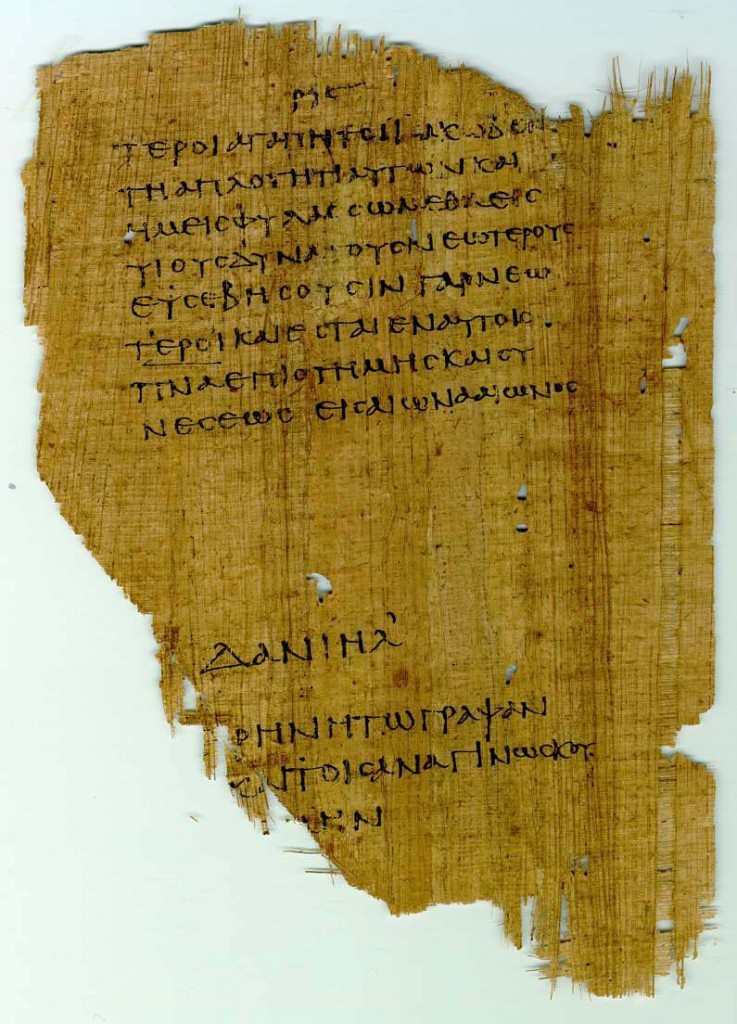 ρϟϛ
ΤΕΡΟΙΑΓΑΠΗΤΟΙΙΑΚΩΒΕΝ
ΤΗΑΠΛΟΤΗΤΙΑΥΤΩΝΚΑΙ
ΗΜΕΙϹΦΥΛΑϹϹΩΜΕΘΑΕΙϹ
ΥΙΟΥϹΔΥΝΑΤΟΥϹΝΕΩΤΕΡΟΥϹ
ΕΥϹΕΒΗϹΟΥϹΙΝΓΑΡΝΕΩ
ΤΕΡΟΙΚΑΙΕϹΤΑΙΕΝΑΥΤΟΙϹ
ΠΝΑΕΠΙϹΤΗΜΗϹΚΑΙϹΥ
ΝΕϹΕΩϹ ΕΙϹΑΙΩΝΑΑΙΩΝΟϹ
ΔΑΝΙΗΛ
ΡΗΝΗΤΩΓΡΑΨΑΝ
ΚΑΙΤΟΙϹΑΝΑΓΙΝΩϹΚΟΥ
ΜΗΝ